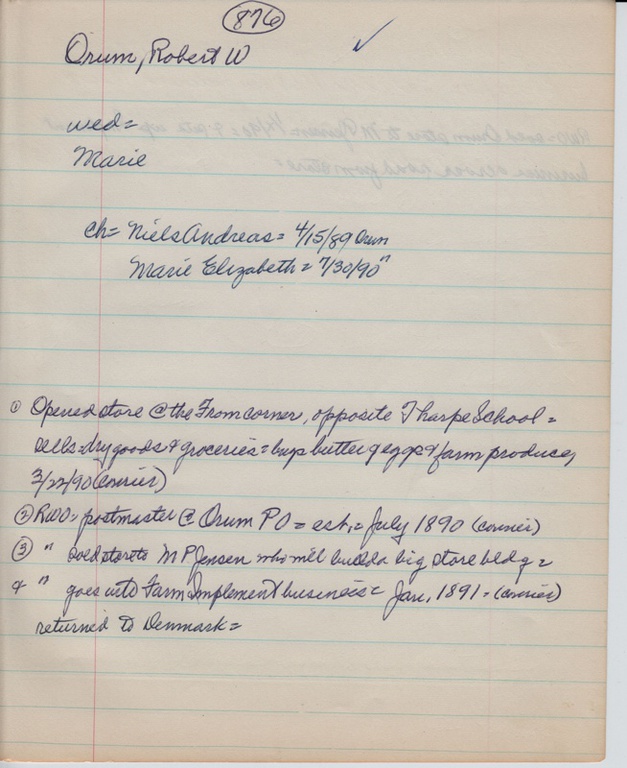 876
Orum, Robert W
wed=
Marie
ch= Niels Andreas= 4/15/89 Orum
Marie Elizabeth= 7/30/90 "
① Opened store @ the From corner, opposite Tharpe School=
sells=dry goods & groceries= buys butter & eggs & farm produce,
3/22/90 (courier)
② RWO= postmaster @ Orum PO= est,= July 1890 (courier)
③ " sold store to M P Jensen who will build a big store bldg=
& " goes into Farm Implement business= Jan, 1891= (courier)
returned to Denmark=